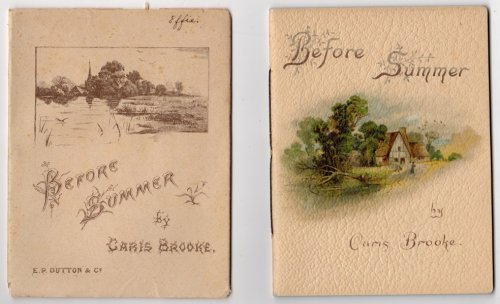 Effie.
Before
Summer
by
Caris Brooke.
E.P. Dutton & Co
Before
Summer
by
Caris Brooke.